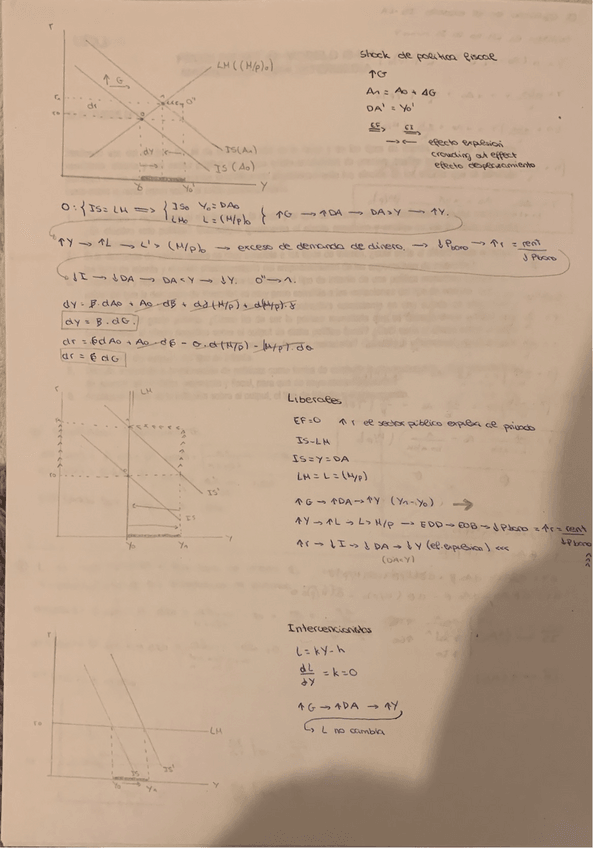 r
LM((M/p)₀)
↑G
O'
r₀
dr
r₀
dY
IS(A₁)
IS(A₀)
Y₀ Y₀' Y
Shock de política fiscal
↑G
A₁ = A₀ + ΔG
DA' = Y₀'
→← efecto expulsión
crowding out effect
efecto desplazamiento
O: { IS = LM ⟹ { IS₀ Y₀ = DA₀
LM₀ L = (M/p)₀ } ↑G → ↑DA → DA > Y → ↑Y.
↑Y → ↑L → L' > (M/p)₀ → exceso de demanda de dinero. → ↓Pbono → ↑r = rent/↓Pbono
↓I → ↓DA → DA < Y → ↓Y. O'' → 1.
dY = β·dG.
dr = ϵ dG
r
LM
IS'
IS
Y₀ Y₁ Y
Liberales
EF=0 ↑r el sector público expulsa al privado
IS-LM
IS = Y = DA
LM = L = (M/p)
↑G → ↑DA → ↑Y (Y₁-Y₀) →
↑Y → ↑L → L > M/p → EDD → EOB → ↓Pbono = ↑r = rent/↓Pbono
↑r → ↓I → ↓DA → ↓Y (ef. expulsión)
(DA<Y)
r
r₀
LM
IS IS'
Y₀ Y₁ Y
Intervencionistas
L = kY - h
dL/dY = k = 0
↑G → ↑DA → ↑Y
↳ L no cambia